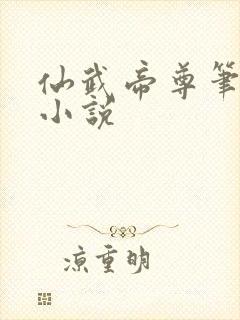 仙武帝尊笔
小说
凉重明